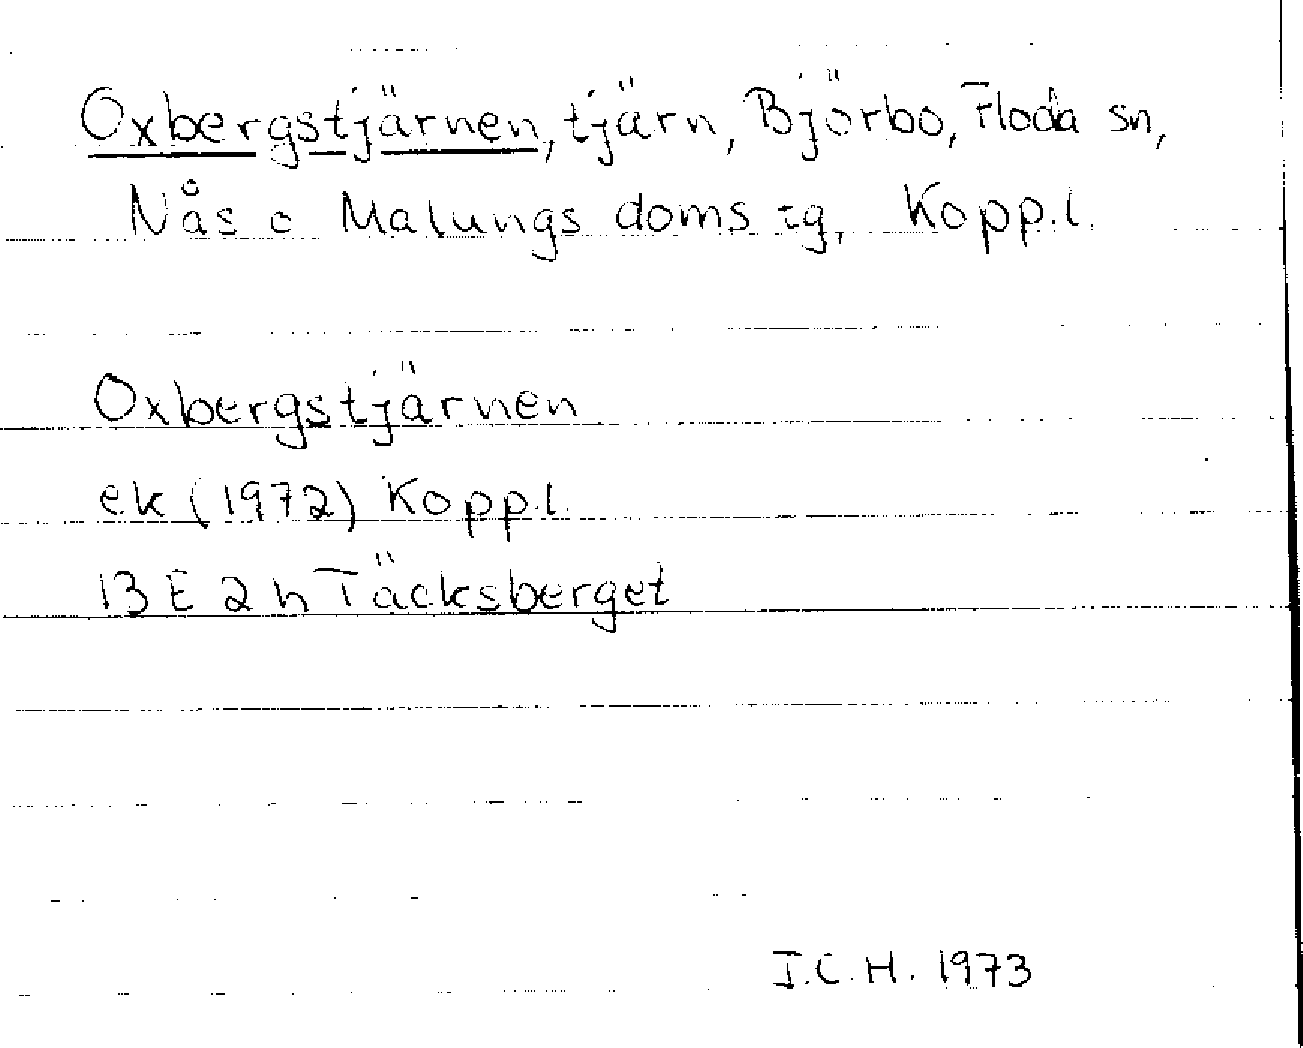 Oxbergstjärnen, tjärn, Björbo, Floda sn,
Nås o Malungs doms:g, Kopp.l.
Oxbergstjärnen
ek (1972) Kopp.l.
13 E 2 h Täcksberget
J.C.H. 1973